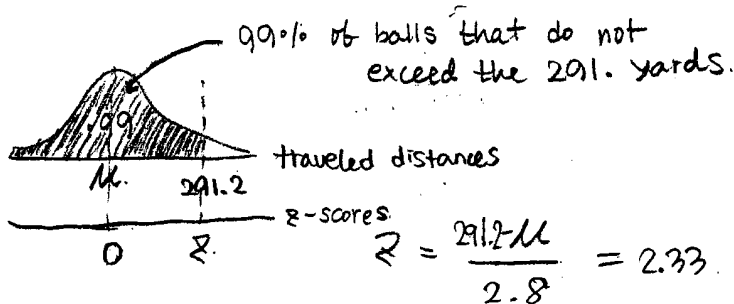 99% of balls that do not
exceed the 291. yards.
.99
traveled distances
μ. 291.2
z-scores.
0 z.
z = 291.2-μ / 2.8 = 2.33